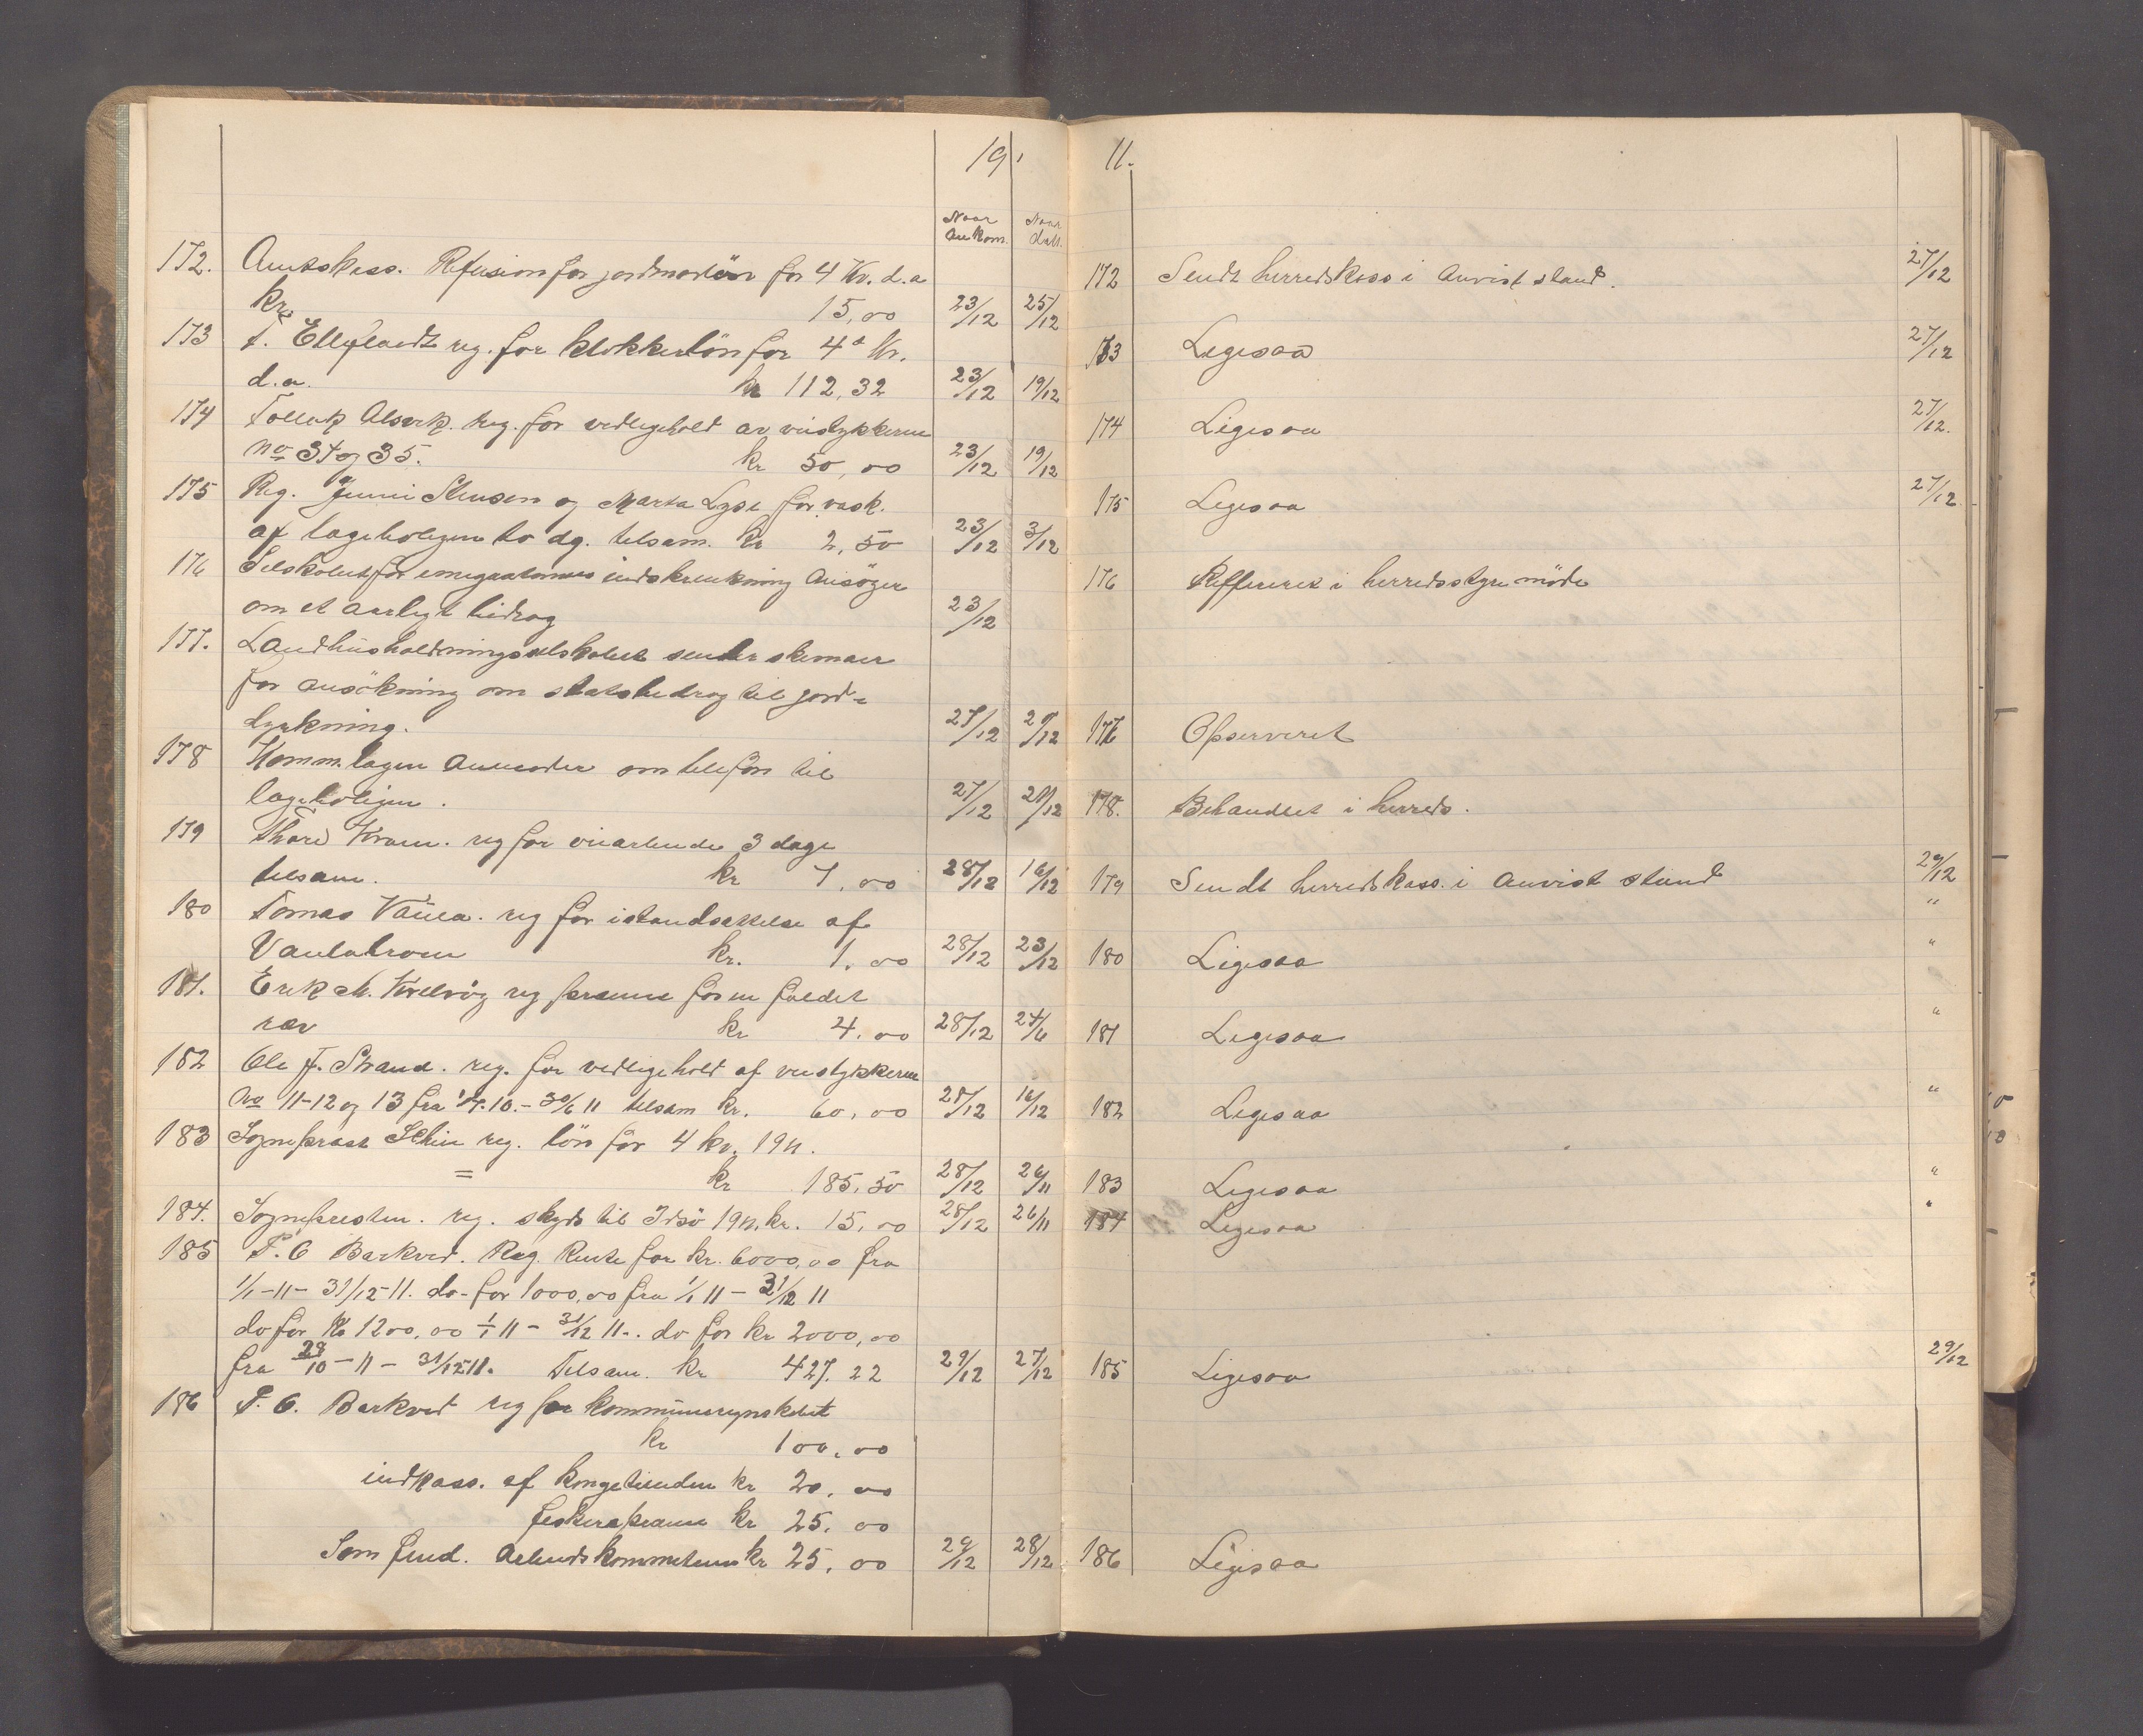 19 11.
Naar Ankom. Naar datt.
172. Amtskass. Refusion for jordmorløn for 4 Kv. d.a
kr. 15,00 23/12 25/12
173 T. Ellefsandt reg. for klokkerløn for 4de Kv.
d.a. kr 112,32 23/12 19/12
174 Tollak Alsvik. Reg. for vedligehold av veistykkerne
No 34 og 35. kr 50,00 23/12 19/12
175 Reg. Jenni Stensen og Marta Lyse for vask.
af lægeboligen to dg. tilsam. kr 2,50 23/12 3/12
176 Selskabet for emigrationens indskrenkning Ansøger
om et aarligt bidrag 23/12
177. Landhusholdningsselskabet sender skemaer
for ansøkning om statsbidrag til jord-
dyrkning. 27/12 21/12
178 Komm.lægen Anmoder om telefon til
lægeboligen. 27/12 21/12
179 Thore Kvam. reg for veiarbeide 3 dage
tilsam. kr 7,00 28/12 16/12
180 Tomas Vaula. reg for istandsættelse af
Vaulabroen kr. 1.00 28/12 23/12
181. Erik M. reg præmie for en fældet
ræv kr 4.00 28/12 24/6
182 Ole J. Strand. reg. for vedligehold af veistykkerne
No 11-12 og 13 fra 1/7.10.- 30/6 11 tilsam kr. 60,00 28/12 16/12
183 Sogneprest reg. løn for 4 kv. 1911.
= kr 185.50 28/12 26/11
184. Sognepresten. reg. skyds til Idsø 1911. kr. 15.00 28/12 26/11
185 P. O Barkved. Reg. Rente for kr. 6000,00 fra
1/1-11- 31/12-11. do- for 1000,00 fra 1/1 11 - 31/12 11
do for kr 1200,00 1/1 11 - 31/12 11-. do for kr 2000,00
fra 28/10 - 11 - 31/12 11. Tilsam. kr 427.22 29/12 27/12
186 P. O. Barkved reg for kommuneregnskabet
kr 100.00
indkass. af kongetienden kr 20.00
kr 25.00
Som Arbeidskommiteen kr 25,00 29/12 28/12
172 Sendt herredskass i Anvist stand. 27/12
173 Ligesaa 27/12
174 Ligesaa 27/12.
175 Ligesaa 27/12
176 Reffereret i herredsstyremøde
177 Opserveret
178. Behandlet i herreds.
179 Sendt herredskass. i Anvist stand 29/12
"
180 Ligesaa "
181 Ligesaa "
182 Ligesaa "
183 Ligesaa "
184 Ligesaa "
185 Ligesaa 29/12
186 Ligesaa